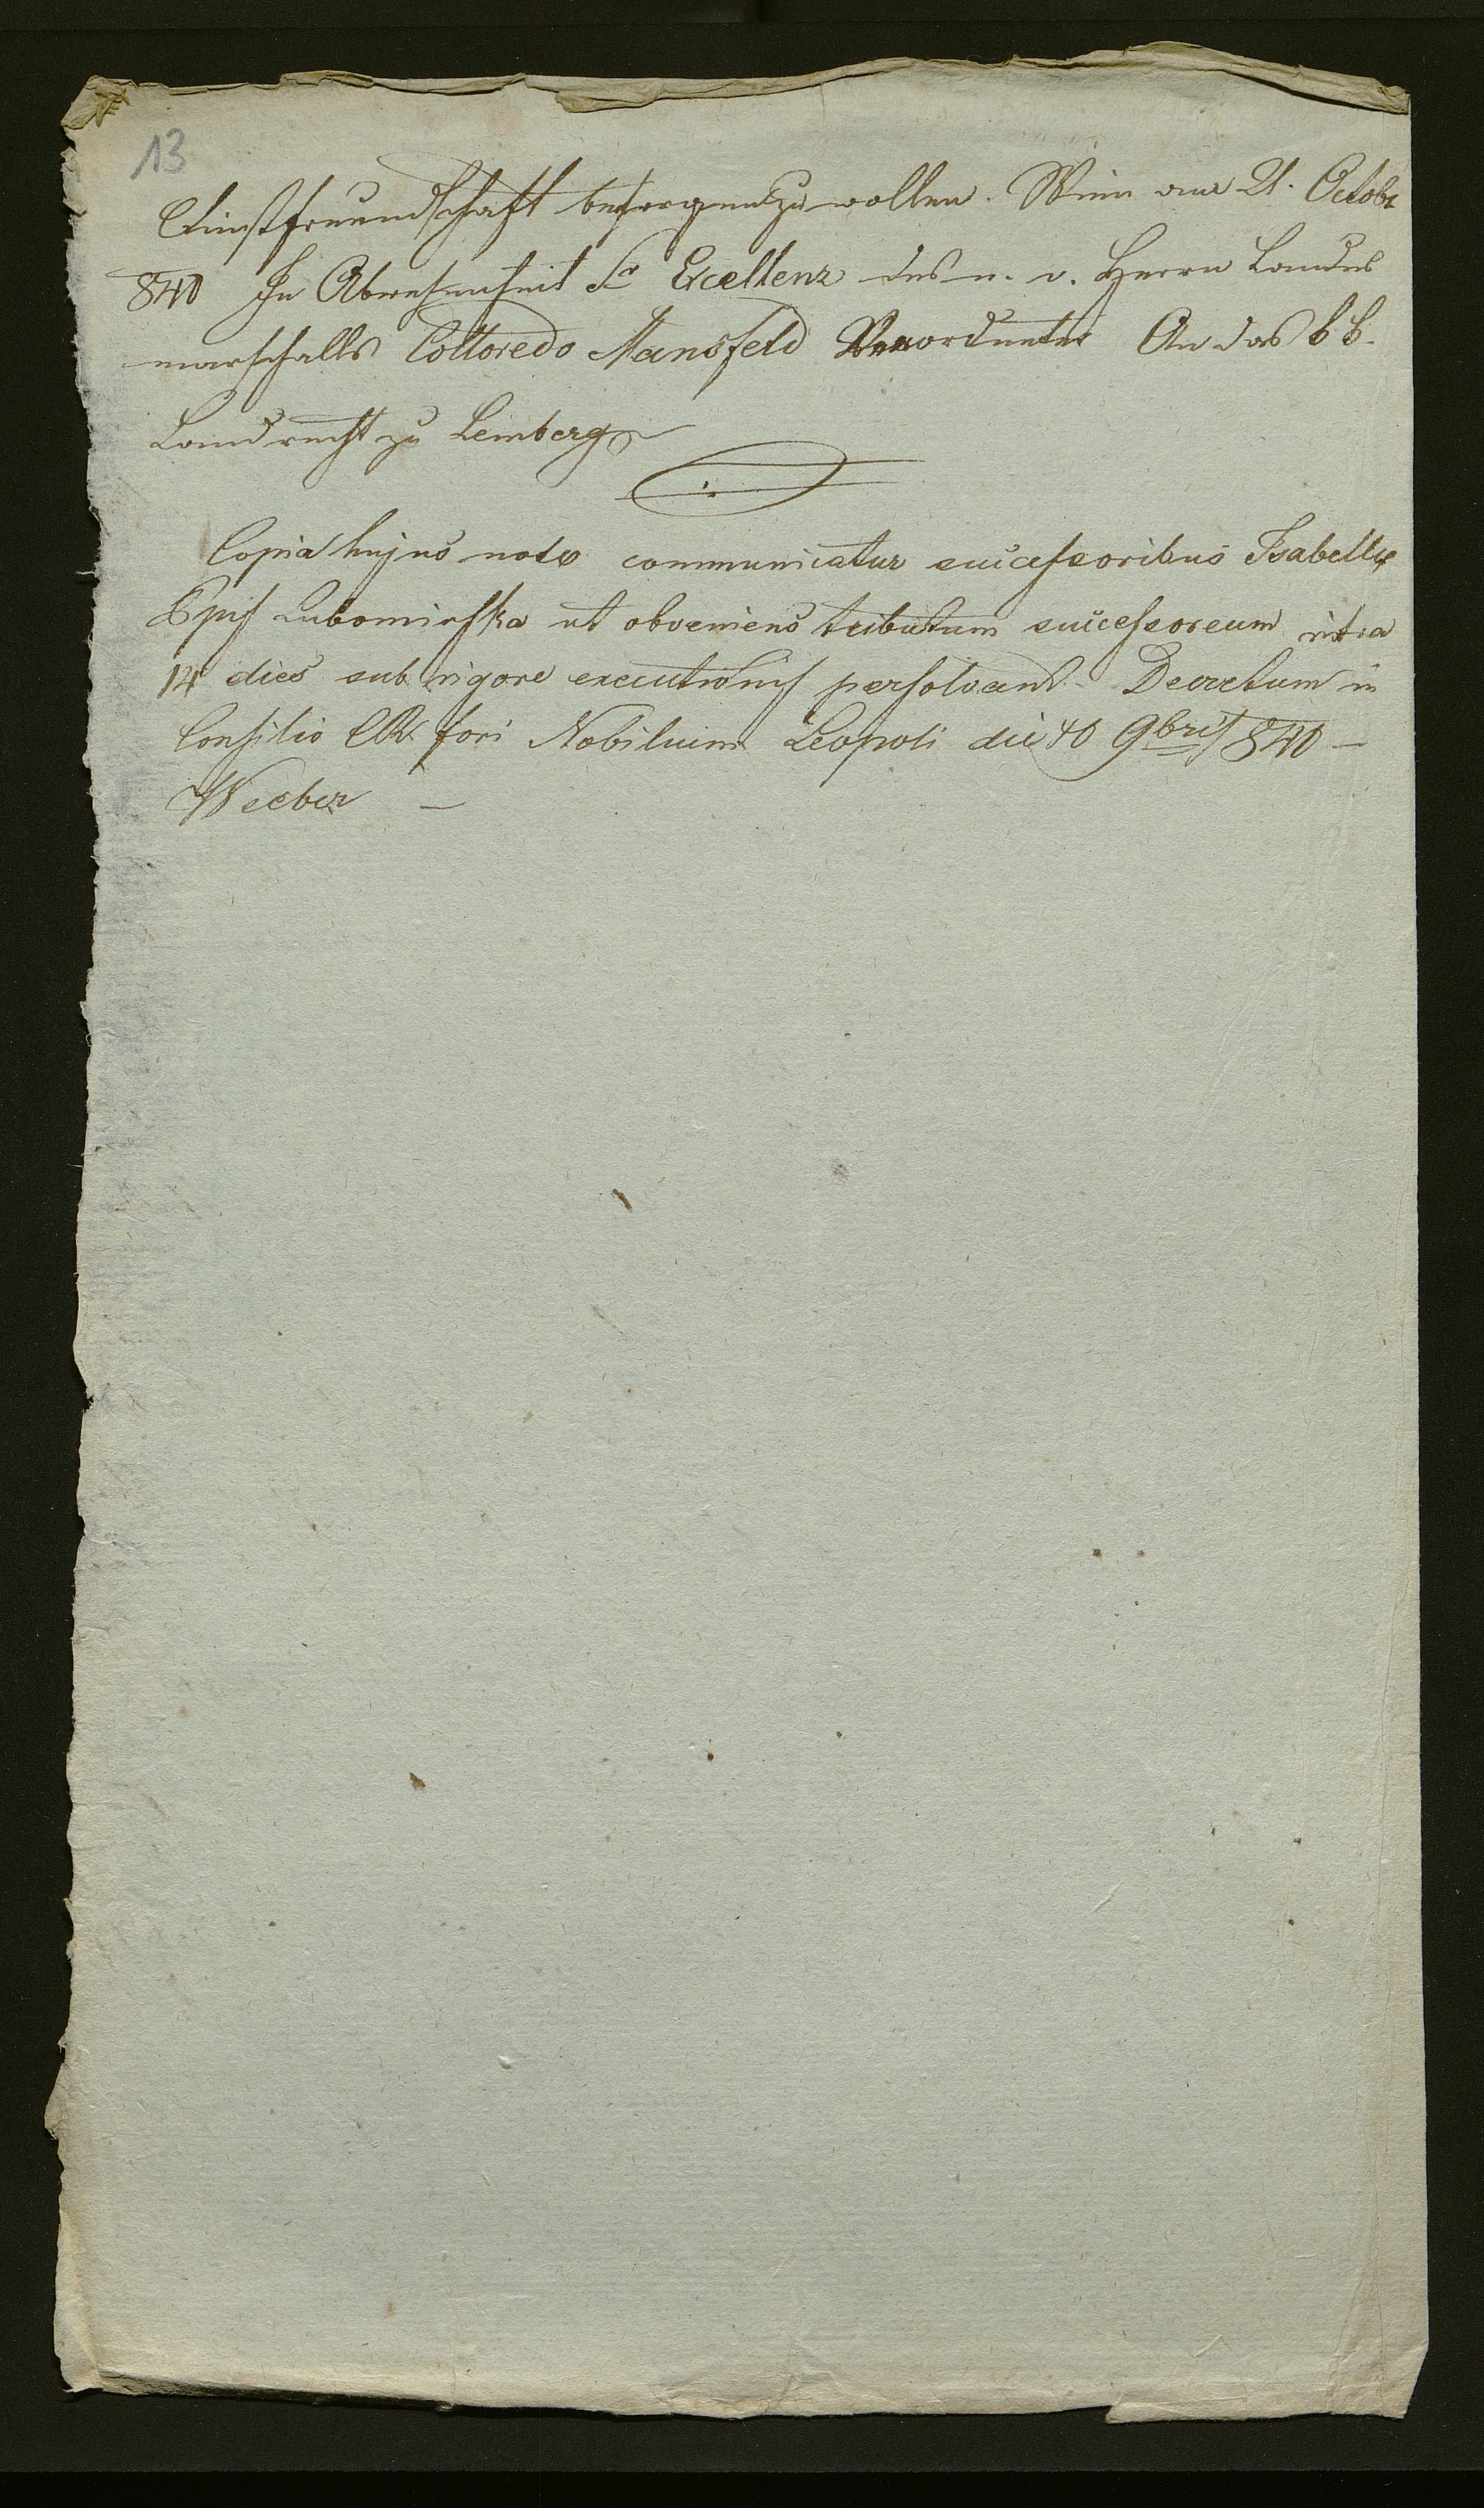 13
Dienstfreundschaft besorgen zu wollen. Wien am 21. Octobr
840 In Abwesenheit Sr Excellenz des n. o. Herrn Landes
marschalls Colloredo Mansfeld Verordneter An das k k.
Landrecht zu Lemberg
Copia hujus notæ communicatur successoribus Isabellæ
Lubomirska ut obveniens tributum successoreum intra
14 dies sub rigore executionis persolvant. Decretum in
Consilio CR. fori Nobilium Leopoli die 10 9bris 840 –
Weeber –